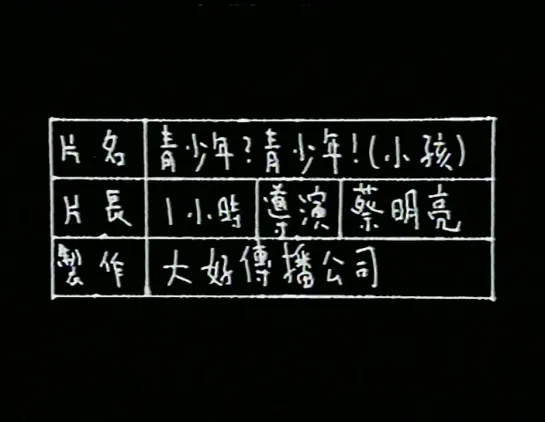 片名 青少年?青少年!(小孩)
片長 1小時 導演 蔡明亮
製作 大好傳播公司